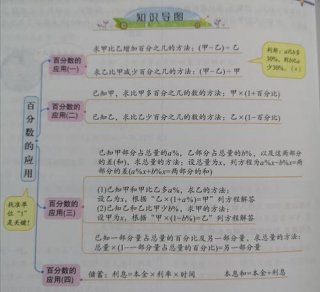 知识导图
求甲比乙增加百分之几的方法：(甲-乙)÷乙
求乙比甲减少百分之几的方法：(甲-乙)÷甲
判断：a比b多
30%，则b比a
少30%。(×)
百分数的
应用(一)
已知甲，求比甲多百分之几的数的方法：甲×(1+百分比)
已知乙，求比乙少百分之几的数的方法：乙×(1-百分比)
百分数的
应用(二)
百分数的应用
找准单
位“1”
是关键！
已知甲部分占总量的a%，乙部分占总量的b%，以及这两部分
的差(和)，求总量的方法：设总量为x，列方程为a%x-b%x=两
部分的差(a%x+b%x=两部分的和)
(1)已知甲和甲比乙多a%，求乙的方法：
设乙为x，根据“乙×(1+a%)=甲”列方程解答
(2)已知乙和乙比甲少b%，求甲的方法：
设甲为x，根据“甲×(1-b%)=乙”列方程解答
百分数的
应用(三)
已知一部分量占总量的百分比及另一部分量，求总量的方法：
总量×(1-一部分量占总量的百分比)=另一部分量
百分数的
应用(四)
储蓄：利息=本金×利率×时间 本息和=本金+利息